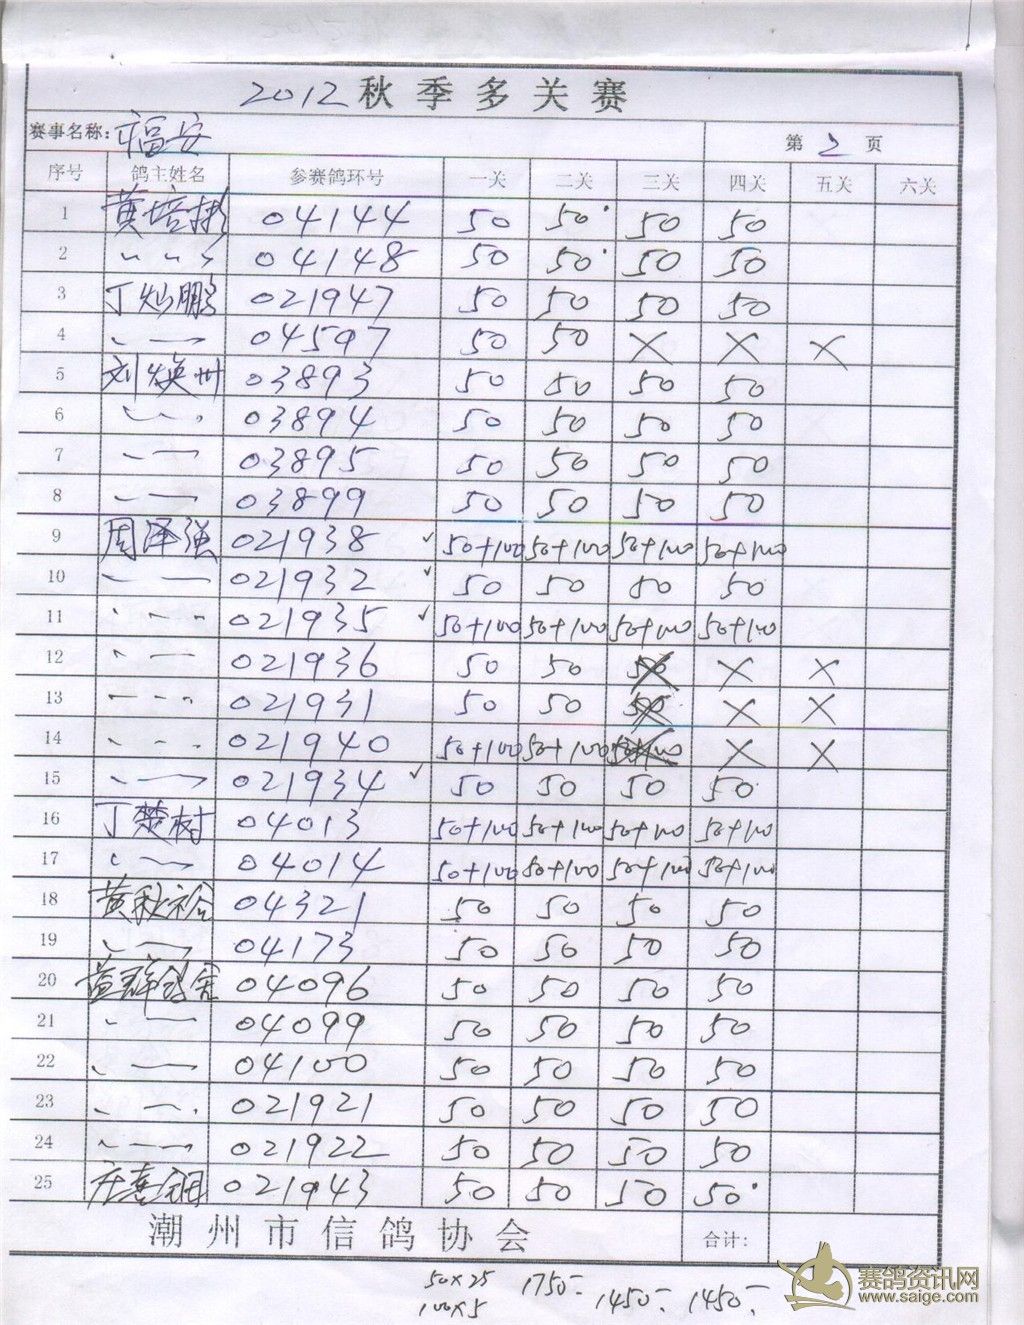 2012 秋季多关赛
赛事名称: 福安 第 2 页
序号 鸽主姓名 参赛鸽环号 一关 二关 三关 四关 五关 六关
1 黄培彬 04144 50 50 50 50
2 〃 〃 04148 50 50 50 50
3 丁灿鹏 021947 50 50 50 50
4 〃 04597 50 50 × × ×
5 刘焕州 03893 50 50 50 50
6 〃 03894 50 50 50 50
7 〃 03895 50 50 50 50
8 〃 03899 50 50 50 50
9 周泽强 021938 ✓ 50+100 50+100 50+100 50+100
10 〃 021932 ✓ 50 50 50 50
11 〃 021935 ✓ 50+100 50+100 50+100 50+100
12 〃 021936 50 50 50 × ×
13 〃 021931 50 50 50 × ×
14 〃 021940 50+100 50+100 50+100 × ×
15 〃 021934 ✓ 50 50 50 50
16 丁楚树 04013 50+100 50+100 50+100 50+100
17 〃 04014 50+100 50+100 50+100 50+100
18 黄秋裕 04321 50 50 50 50
19 〃 04173 50 50 50 50
20 黄群鸽舍 04096 50 50 50 50
21 〃 04099 50 50 50 50
22 〃 04100 50 50 50 50
23 〃 021921 50 50 50 50
24 〃 021922 50 50 50 50
25 021943 50 50 50 50
潮州市信鸽协会 合计:
50×25 1750- 1450- 1450-
100×5
赛鸽资讯网
www.saige.com